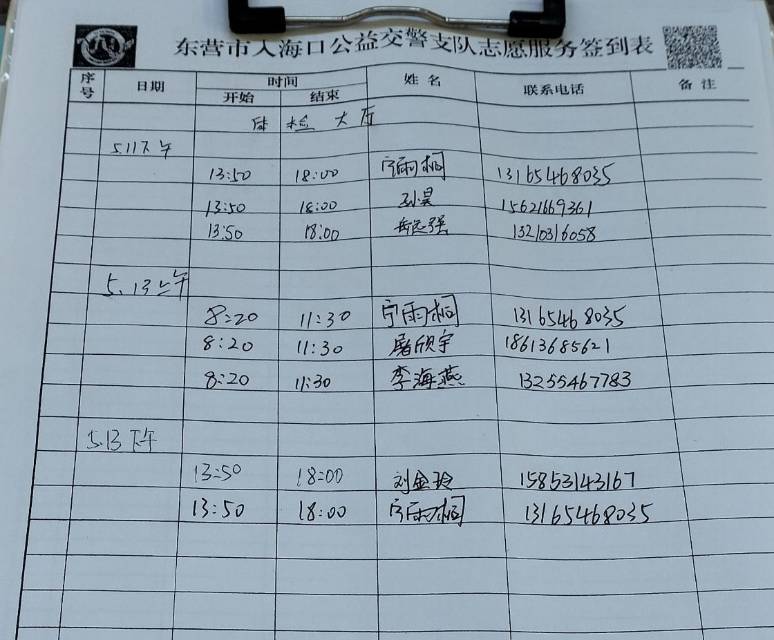 东营市入海口公益交警支队志愿服务签到表
序号 日期 时间 姓名 联系电话 备注
开始 结束
体检大厅
5.11下午
13:50 18:00 宁雨桐 13165468035
13:50 18:00 孙昊 15621669361
13:50 18:00 岳远强 13210316058
5.13上午
8:20 11:30 宁雨桐 13165468035
8:20 11:30 屠欣宇 18613685621
8:20 11:30 李海燕 13255467783
5.13下午
13:50 18:00 刘金玲 15853143167
13:50 18:00 宁雨桐 13165468035